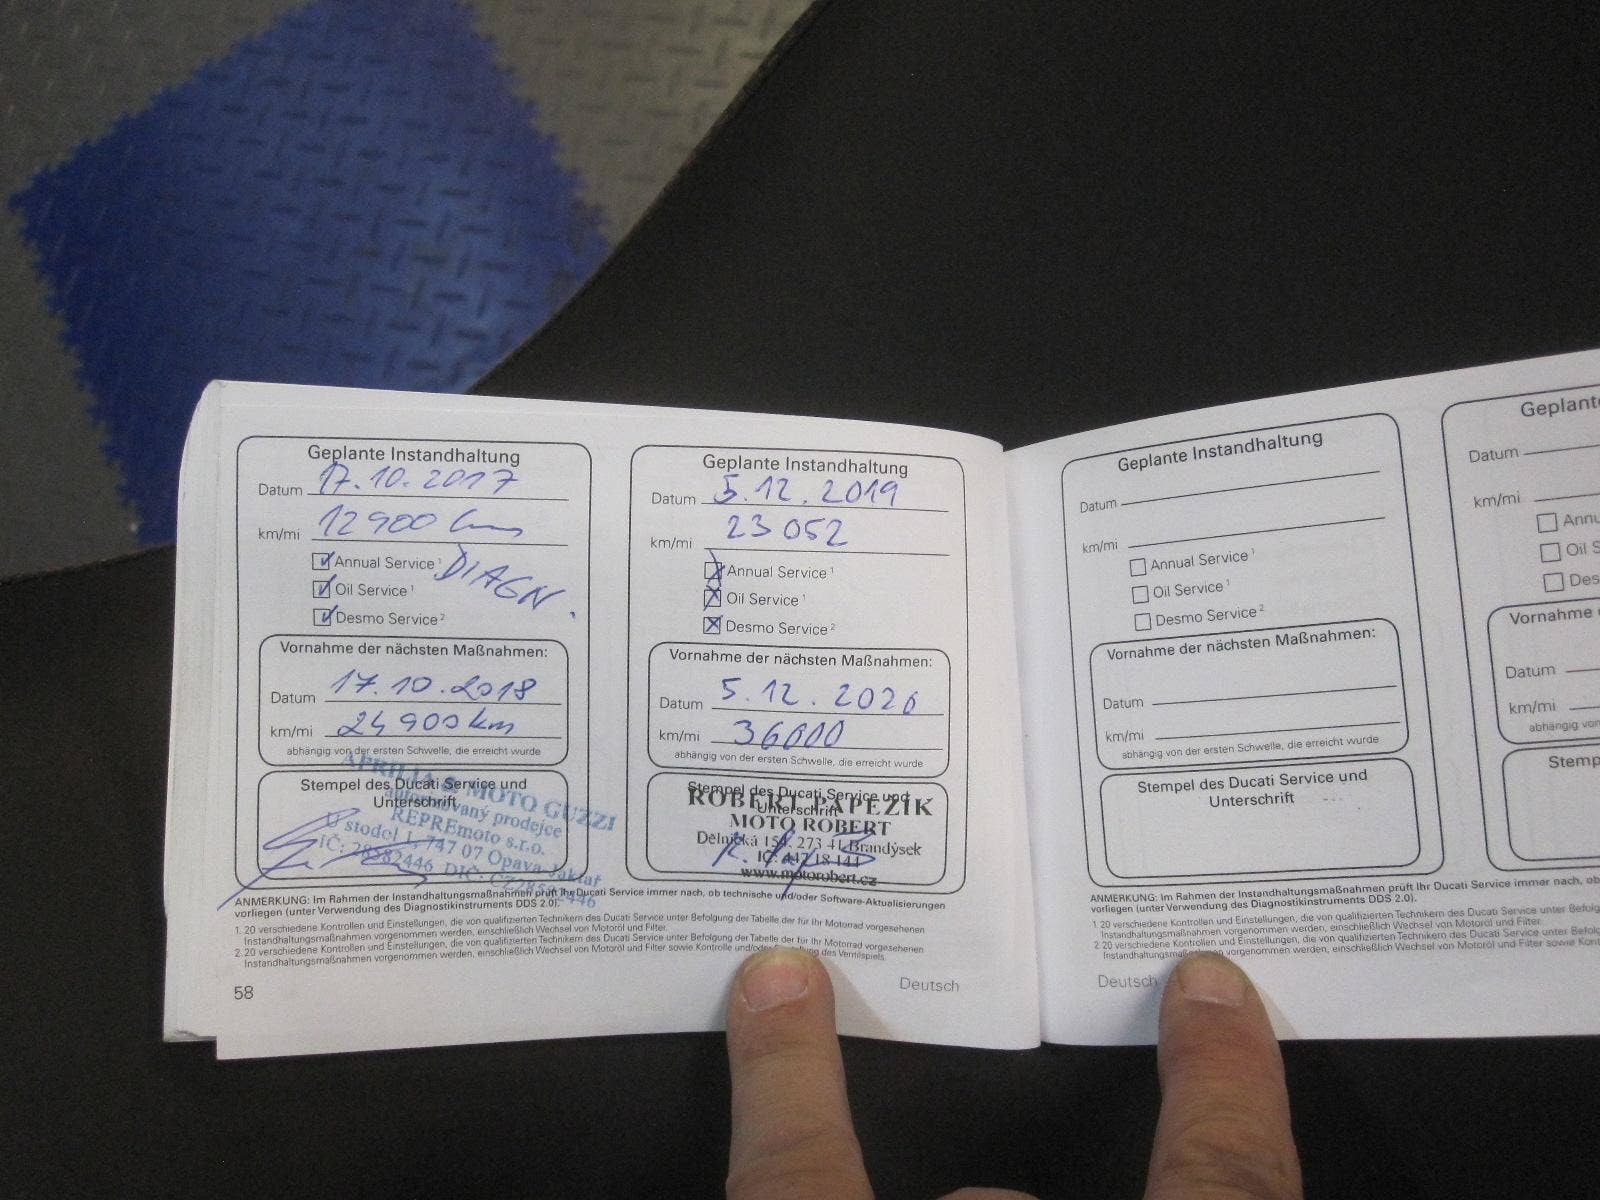 Geplante Instandhaltung
Datum 17.10.2017
km/mi 12900 km
Annual Service 1 DIAGN.
Oil Service 1
Desmo Service 2
Vornahme der nächsten Maßnahmen:
Datum 17.10.2018
km/mi 24900 km
abhängig von der ersten Schwelle, die erreicht wurde
Stempel des Ducati Service und
Unterschrift
APRILIA & MOTO GUZZI
autorizovaný prodejce
REPREmoto s.r.o.
U stodol 1, 747 07 Opava-Jaktař
IČ: 28582446 DIČ: CZ28582446
Geplante Instandhaltung
Datum 5.12.2019
km/mi 23 052
Annual Service 1
Oil Service 1
Desmo Service 2
Vornahme der nächsten Maßnahmen:
Datum 5.12.2020
km/mi 36000
abhängig von der ersten Schwelle, die erreicht wurde
Stempel des Ducati Service und
Unterschrift
ROBERT PAPEZIK
MOTO ROBERT
Dělnická 151, 273 41 Brandýsek
IČ: 447 18 144
www.motorobert.cz
ANMERKUNG: Im Rahmen der Instandhaltungsmaßnahmen prüft Ihr Ducati Service immer nach, ob technische und/oder Software-Aktualisierungen
vorliegen (unter Verwendung des Diagnostikinstruments DDS 2.0).
1. 20 verschiedene Kontrollen und Einstellungen, die von qualifizierten Technikern des Ducati Service unter Befolgung der Tabelle der für Ihr Motorrad vorgesehenen
Instandhaltungsmaßnahmen vorgenommen werden, einschließlich Wechsel von Motoröl und Filter.
2. 20 verschiedene Kontrollen und Einstellungen, die von qualifizierten Technikern des Ducati Service unter Befolgung der Tabelle der für Ihr Motorrad vorgesehenen
Instandhaltungsmaßnahmen vorgenommen werden, einschließlich Wechsel von Motoröl und Filter sowie Kontrolle und/oder des Ventilspiels.
58
Deutsch
Geplante Instandhaltung
Datum
km/mi
Annual Service 1
Oil Service 1
Desmo Service 2
Vornahme der nächsten Maßnahmen:
Datum
km/mi
abhängig von der ersten Schwelle, die erreicht wurde
Stempel des Ducati Service und
Unterschrift
Geplant
Datum
km/mi
Annu
Oil S
Des
Vornahme
Datum
km/mi
abhängig von
Stemp
ANMERKUNG: Im Rahmen der Instandhaltungsmaßnahmen prüft Ihr Ducati Service immer nach, ob
vorliegen (unter Verwendung des Diagnostikinstruments DDS 2.0).
1. 20 verschiedene Kontrollen und Einstellungen, die von qualifizierten Technikern des Ducati Service unter Befolg
Instandhaltungsmaßnahmen vorgenommen werden, einschließlich Wechsel von Motoröl und Filter.
2. 20 verschiedene Kontrollen und Einstellungen, die von qualifizierten Technikern des Ducati Service unter Befolg
vorgenommen werden, einschließlich Wechsel von Motoröl und Filter sowie Kont
Deutsch